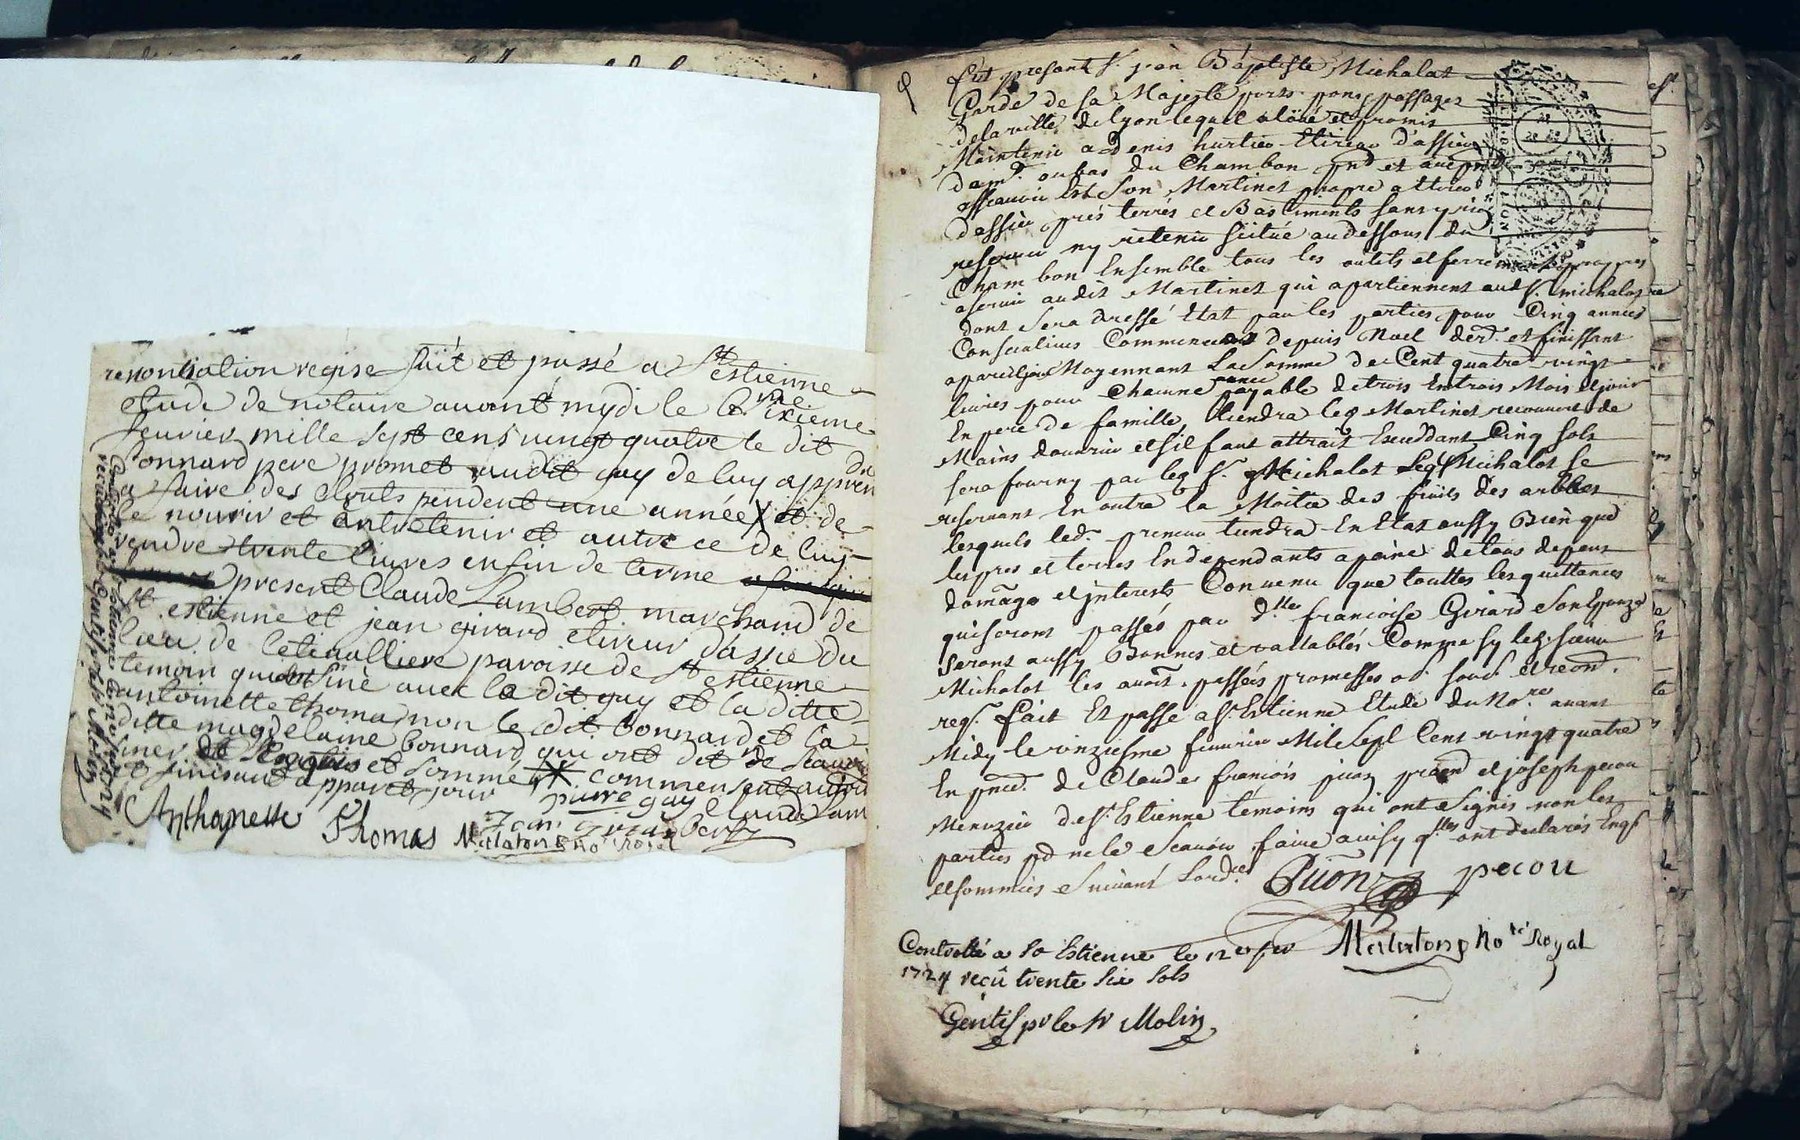 renontiation regise faiit et passé a St estienne
etude de notaire avant mydi le sixieme
feurier mille sept cens vingt quatre le dit
bonnard pere promet audit guy de luy appren
a faire des clouts pendent une année X et de
le nourir et entretenir et autre ce de luy
rendre trente liures en fin de terme
present Claude Lambert marchand de
St estienne et jean girard etireur d'assie du
lieu de letiualliere paroisse de St estienne
temoin qui ont sine auec le dit guy et la ditte
antoinette thomas non le dit bonnard et la
ditte magdelaine bonnard qui ont dit ne scauoir
siner de Requis et sommé X commensent aujour
et finisant a pparel jour
pierre guy Claude Lam
Anthoynette Thomas Jean girard bert
Malaton no re Royal
Est present Sr jean Baptiste Michalat
Garde de sa Majesté ports ponts passages
de la ville de Lyon lequel a loüé et promis
Maintenir a Denis hurtier Etireur d'assier
dam.t au bas du Chambon pnt et acceptt
assçauoir Est Son Martinet propre a tirer
d'assier, prés terrés et Bastiments sans y rien
reseruer ny retenir scitué au dessous du
Chambon Ensemble tous les outils et ferrements propres
a seruir audit Martinet qui apartiennent audt Sr michalat
dont sera dressé Etat par les parties pour Cinq années
Consecutiues Commencant depuis Noel der.r et finissant
a pareil jour Moyennant La Somme de Cent quatre vingt
liures pour Chacune année payable de trois En trois Mois et joüir
En pere de famille, tiendra led. Martinet recouuert de
Mains d'ouurier et s'il faut attrait Excedant Cinq sols
sera fourny par led. Sr. Michalat Led. Sr Michalat se
reseruant En outre la Moitie des fruits des arbres
lesquels led. preneur tiendra En Etat aussy Bien que
les pres et terres En dependants a peine de tous depens
domage et jnterests Conuenu que touttes les quittances
qui seront passés par d.lle francoise Girard son Epouze
seront aussy Bonnes et vallablés Comme sy led. sieur
Michalat les auoit passés promesses ob. soub. et renon.
req.s fait Et passé a St Estienne Etude du No.re auant
Midy le onziesme feurier Mil Sept Cent vingt quatre
En pnce de Claude francois et joseph pecou
Menuzier de St Estienne temoins qui ont signés non les
parties pour ne le Scauoir faire ainsy qu'elles ont declarés Enq.s
et sommés suiuant l'ord.ce
pecou
Malaton No re Royal
Controllé a St Estienne le 12e feu
1724 reçû trente six sols
Gentis pr le Sr Molin